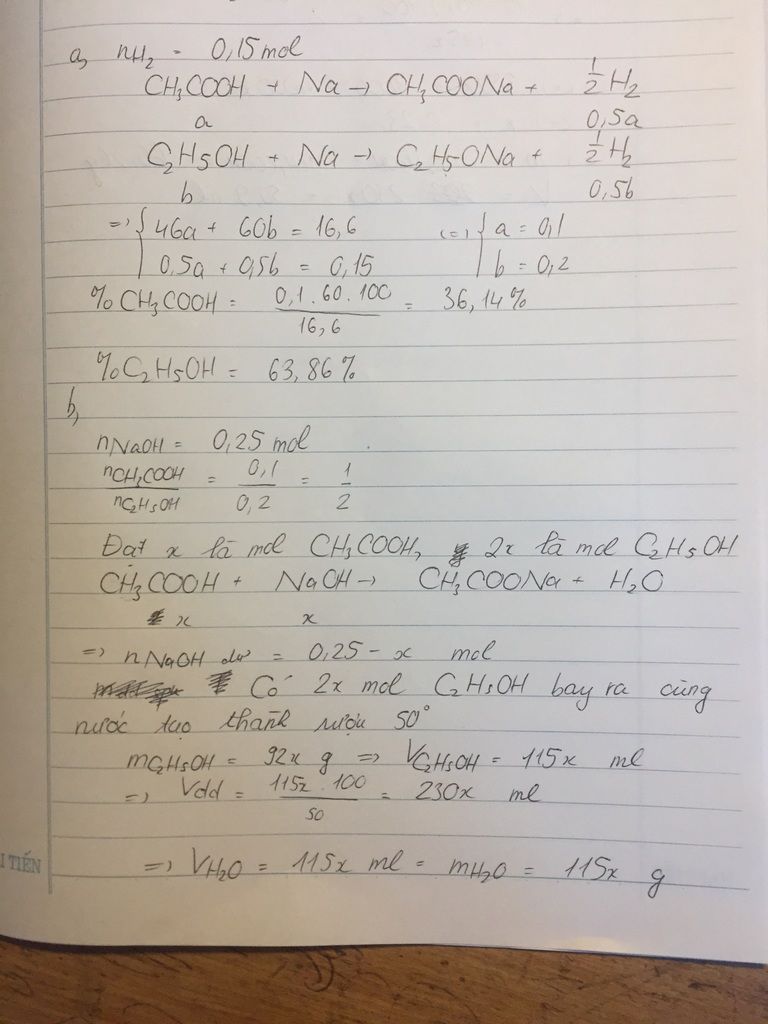 a, nH₂ = 0,15 mol
CH₃COOH + Na → CH₃COONa + ½ H₂
a 0,5a
C₂H₅OH + Na → C₂H₅ONa + ½ H₂
b 0,5b
=> { 46a + 60b = 16,6 (=) { a = 0,1
0,5a + 0,5b = 0,15 b = 0,2
% CH₃COOH = 0,1 . 60 . 100 / 16,6 = 36,14 %
% C₂H₅OH = 63,86 %
b,
nNaOH = 0,25 mol
nCH₃COOH / nC₂H₅OH = 0,1 / 0,2 = 1 / 2
Đặt x là mol CH₃COOH, 2x là mol C₂H₅OH
CH₃COOH + NaOH → CH₃COONa + H₂O
x x
=> nNaOH dư = 0,25 - x mol
Có 2x mol C₂H₅OH bay ra cùng
nước tạo thành rượu 50°
mC₂H₅OH = 92x g => VC₂H₅OH = 115x ml
=> Vdd = 115x . 100 / 50 = 230x ml
=> VH₂O = 115x ml = mH₂O = 115x g
I TIẾN